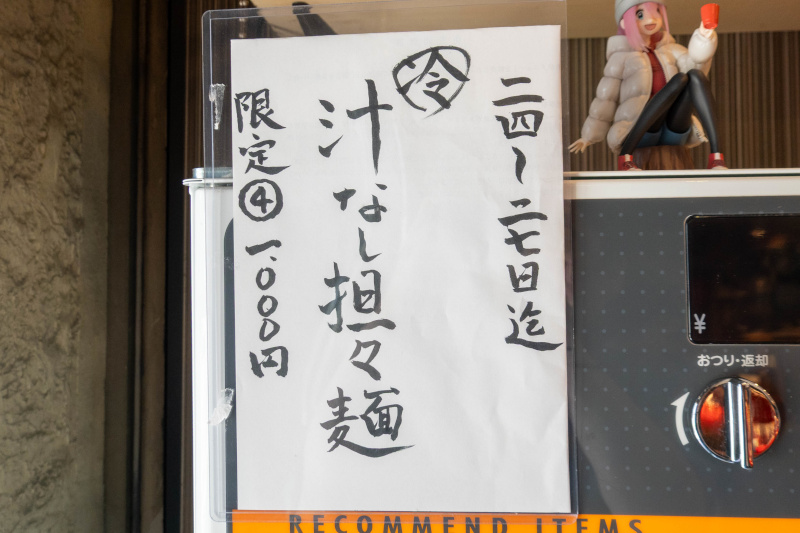 二四〜二七日迄
冷
汁なし担々麺
限定④ 一、〇〇〇円
¥
おつり・返却
RECOMMEND ITEMS